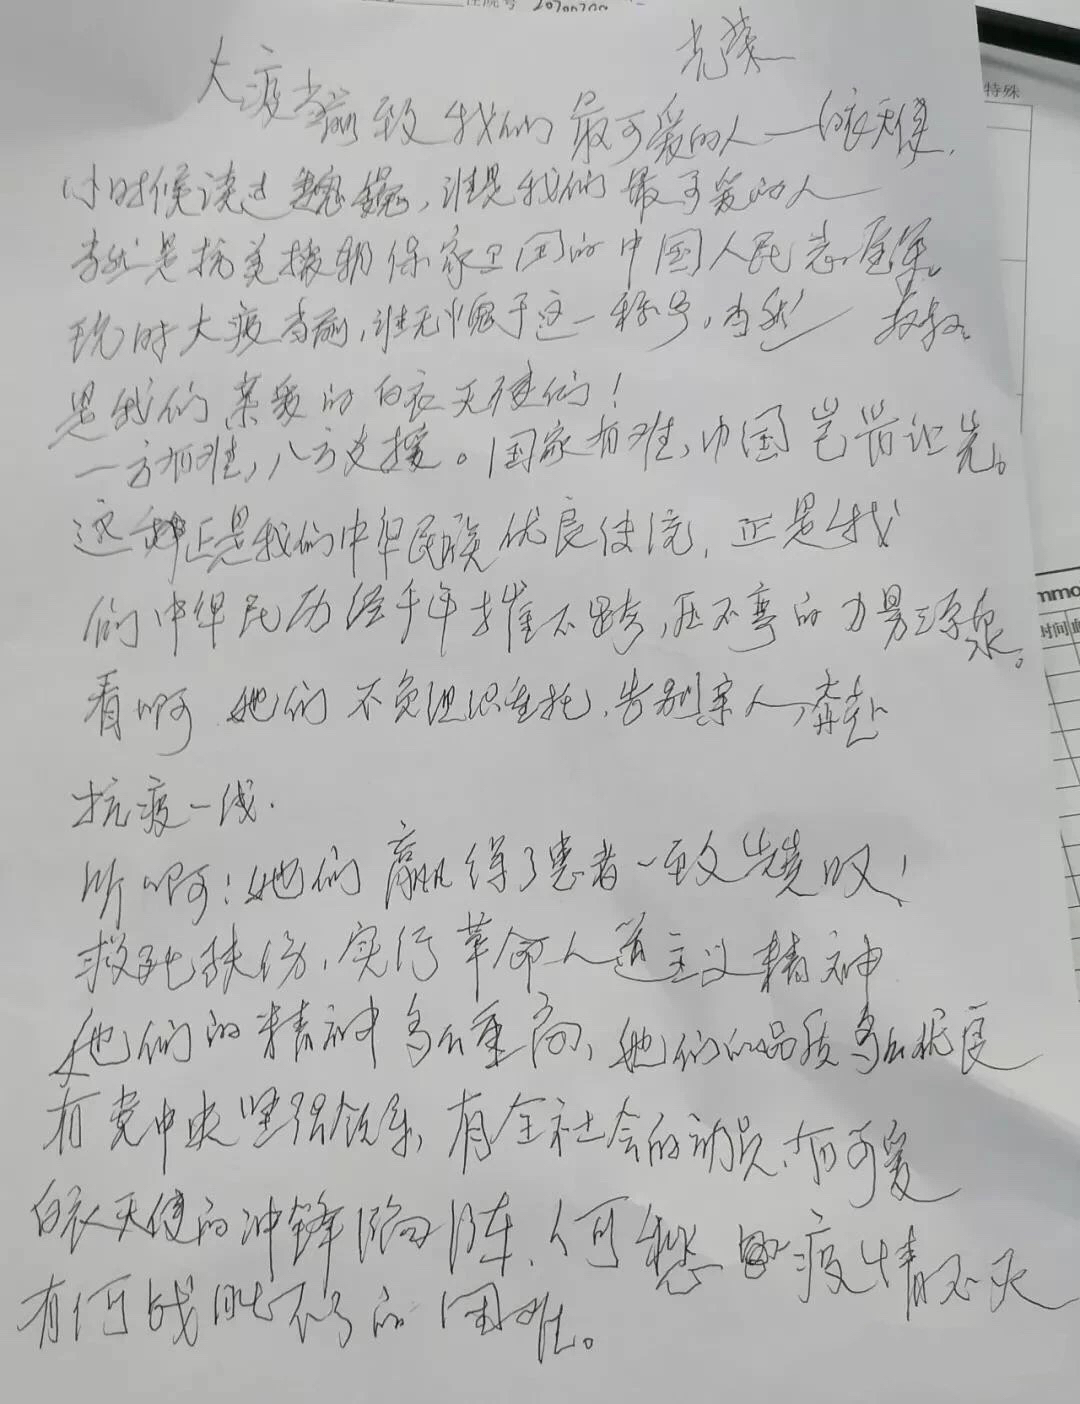 住院号
特殊
光荣
大疫当前致我们最可爱的人——白衣天使
小时候读过魏巍,谁是我们最可爱的人
当然是抗美援朝保家卫国的中国人民志愿军。
现时大疫当前,谁无愧于这一称号,当然
是我们亲爱的白衣天使们!
一方有难,八方支援。国家有难,中国岂
这种正是我们中华民族优良传统,正是我
们中华民历经千年摧不垮,压不弯的力量源泉。
看啊 她们不负组织重托,告别亲人,奔赴
抗疫一线.
听啊!她们赢得了患者一致赞叹!
救死扶伤,实行革命人道主义精神
她们的精神多么重高,她们的品质多么优良
有党中央坚强领导,有全社会的动员,有可爱
白衣天使的冲锋陷阵,何愁疫情不灭
有何战胜不了的困难。
mmo
时间